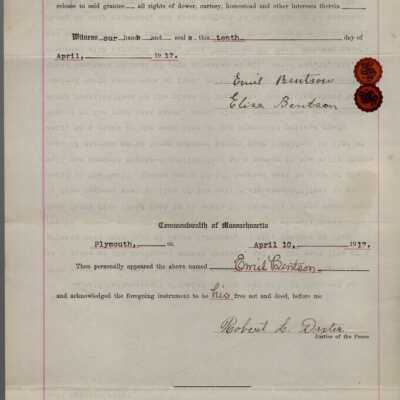 release to said grantee all rights of dower, curtesy, homestead and other interests therein
Witness our hand and seal s this tenth day of
April, 1917.
Emil Bentson
Elisa Bentson
Commonwealth of Massachusetts
Plymouth, ss. April 10, 1917.
Then personally appeared the above named Emil Bentson
and acknowledged the foregoing instrument to be his free act and deed, before me
Robert C. Dexter
Justice of the Peace